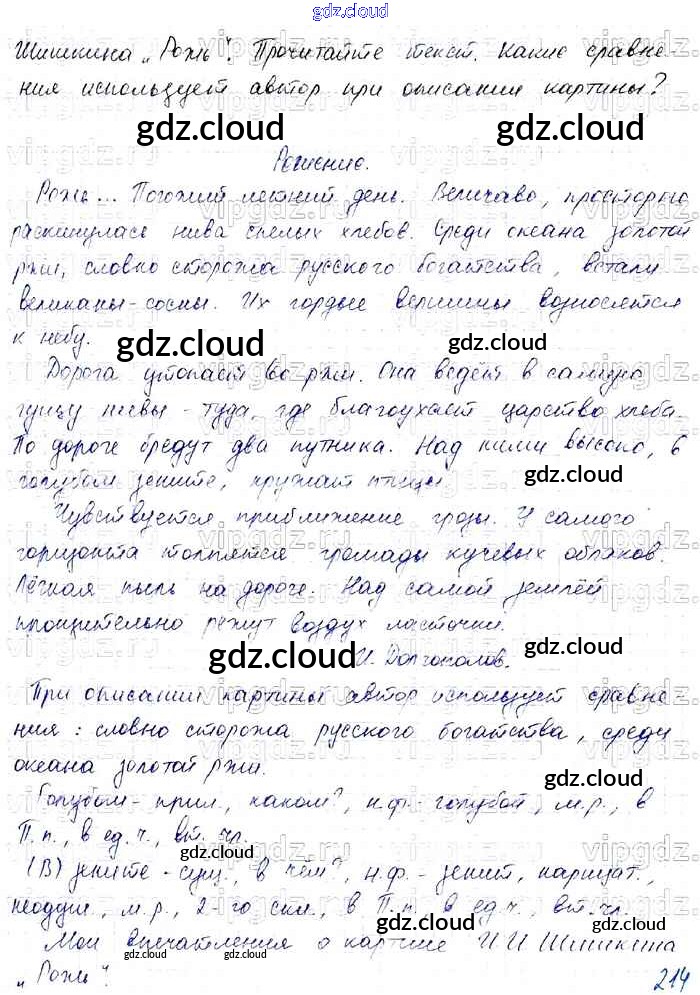 gdz.cloud
Шишкина „Рожь". Прочитайте текст. Какие сравне-
ния использует автор при описании картины?
gdz.cloud gdz.cloud
Решение.
Рожь... Погожий летний день. Величаво, просторно
раскинулась нива спелых хлебов. Среди океана золотой
ржи, словно сторожа русского богатства, встали
великаны-сосны. Их гордые вершины возносятся
к небу.
gdz.cloud gdz.cloud
Дорога утопает во ржи. Она ведёт в самую
гущу нивы - туда, где благоухает царство хлеба.
По дороге бредут два путника. Над ними высоко, в
голубом зените, кружат птицы.
gdz.cloud
Чувствуется приближение грозы. У самого
горизонта толпятся громады кучевых облаков.
Лёгкая пыль на дороге. Над самой землёй
пронзительно режут воздух ласточки.
gdz.cloud И. Долгополов. gdz.cloud
При описании картины автор использует сравне-
ния: словно сторожа русского богатства, среди
океана золотой ржи.
gdz.cloud
Голубом - прил., каком?, н.ф.- голубой, м.р., в
П.п., в ед.ч., вт. чл.
gdz.cloud
(В) зените - сущ., в чём?, н.ф. - зенит, нарицат.,
неодуш., м.р., 2-го скл., в П.п. в ед.ч., вт.чл.
gdz.cloud
Мои впечатления о картине И И Шишкина
gdz.cloud gdz.cloud
„Рожь".
214